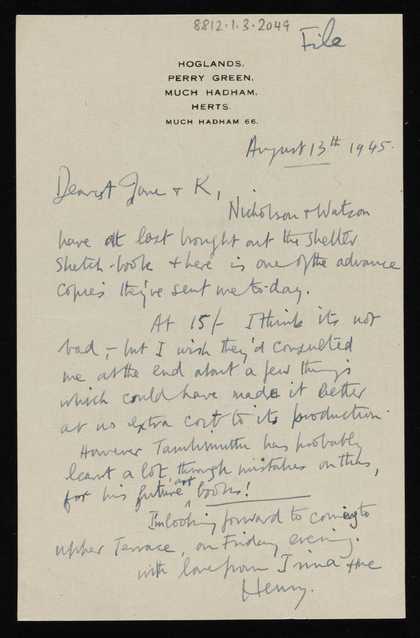 8812·1·3·2049
File
HOGLANDS,
PERRY GREEN,
MUCH HADHAM,
HERTS.
MUCH HADHAM 66.
August 13th 1945.
Dearest Jane & K,
Nicholson & Watson
have at last brought out the shelter
sketch-book & here is one of the advance
copies they've sent me to-day.
At 15/- I think its not
bad, – but I wish they'd consulted
me at the end about a few things
which could have made it better
at no extra cost to its production.
However Tambimuttu has probably
learnt a lot through mistakes on this,
for his future art books!
I'm looking forward to coming to
upper Terrace, on Friday evening.
with love from Irina & me
Henry.